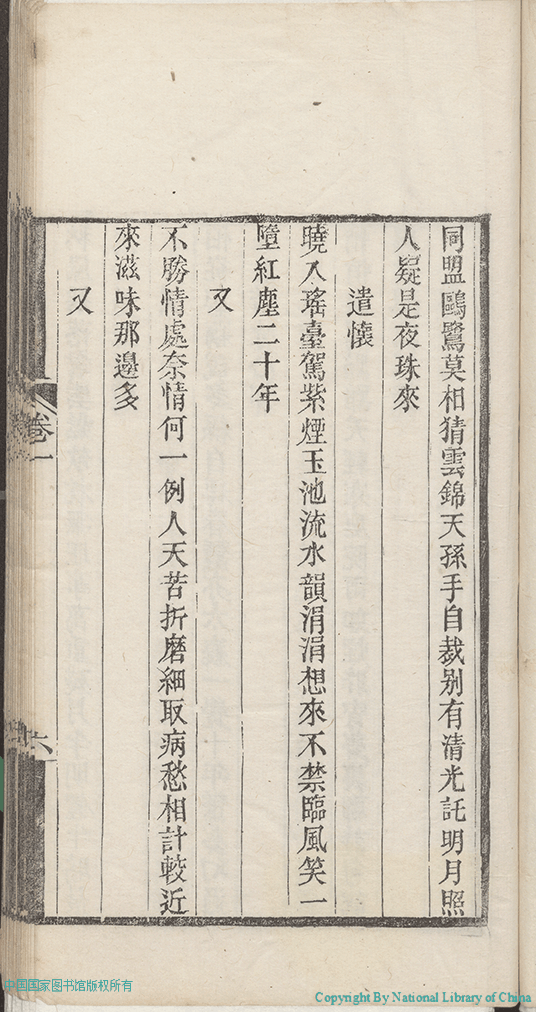 同盟鷗鷺莫相猜雲錦天孫手自裁别有清光託明月照
人疑是夜珠來
遣懷
曉入瑤臺駕紫煙玉池流水韻涓涓想來不禁臨風笑一
墮紅塵二十年
又
不勝情處奈情何一例人天苦折磨細取病愁相計較近
來滋味那邊多
又
卷一
六
中国国家图书馆版权所有
Copyright By National Library of China